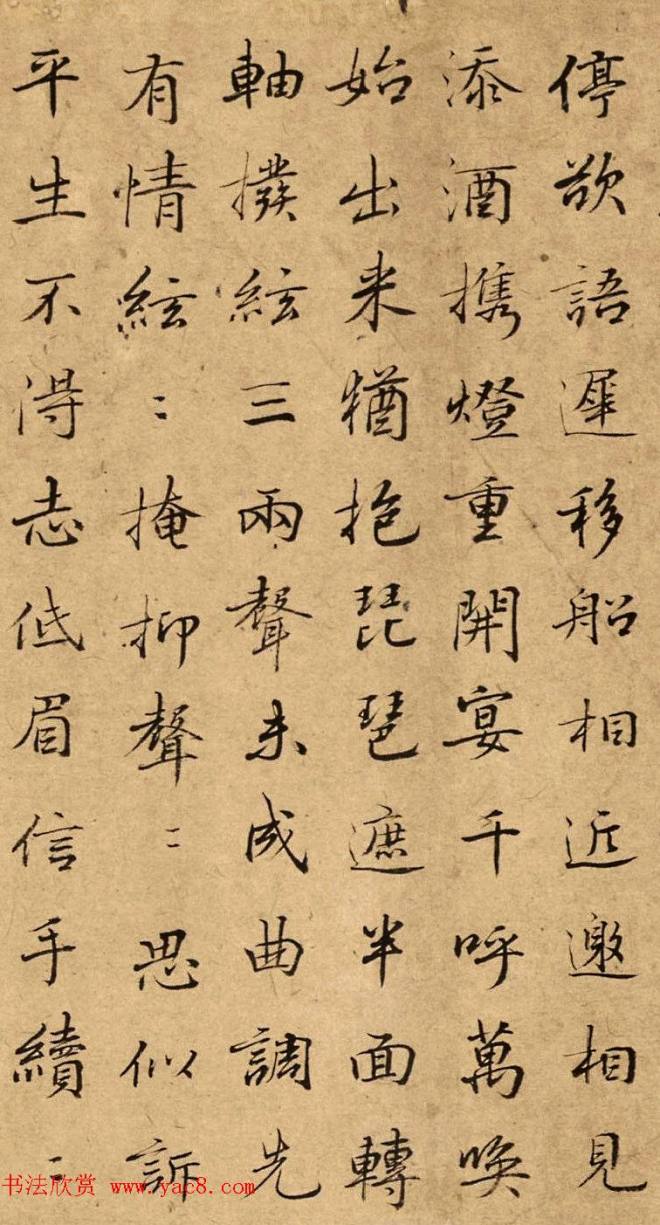 停欲語遲移船相近邀相見
添酒攜燈重開宴千呼萬喚
始出来猶抱琵琶遮半面轉
軸撥絃三兩聲未成曲調先
有情絃〻掩抑聲〻思似訴
平生不得志低眉信手續〻
书法欣赏 www.yac8.com